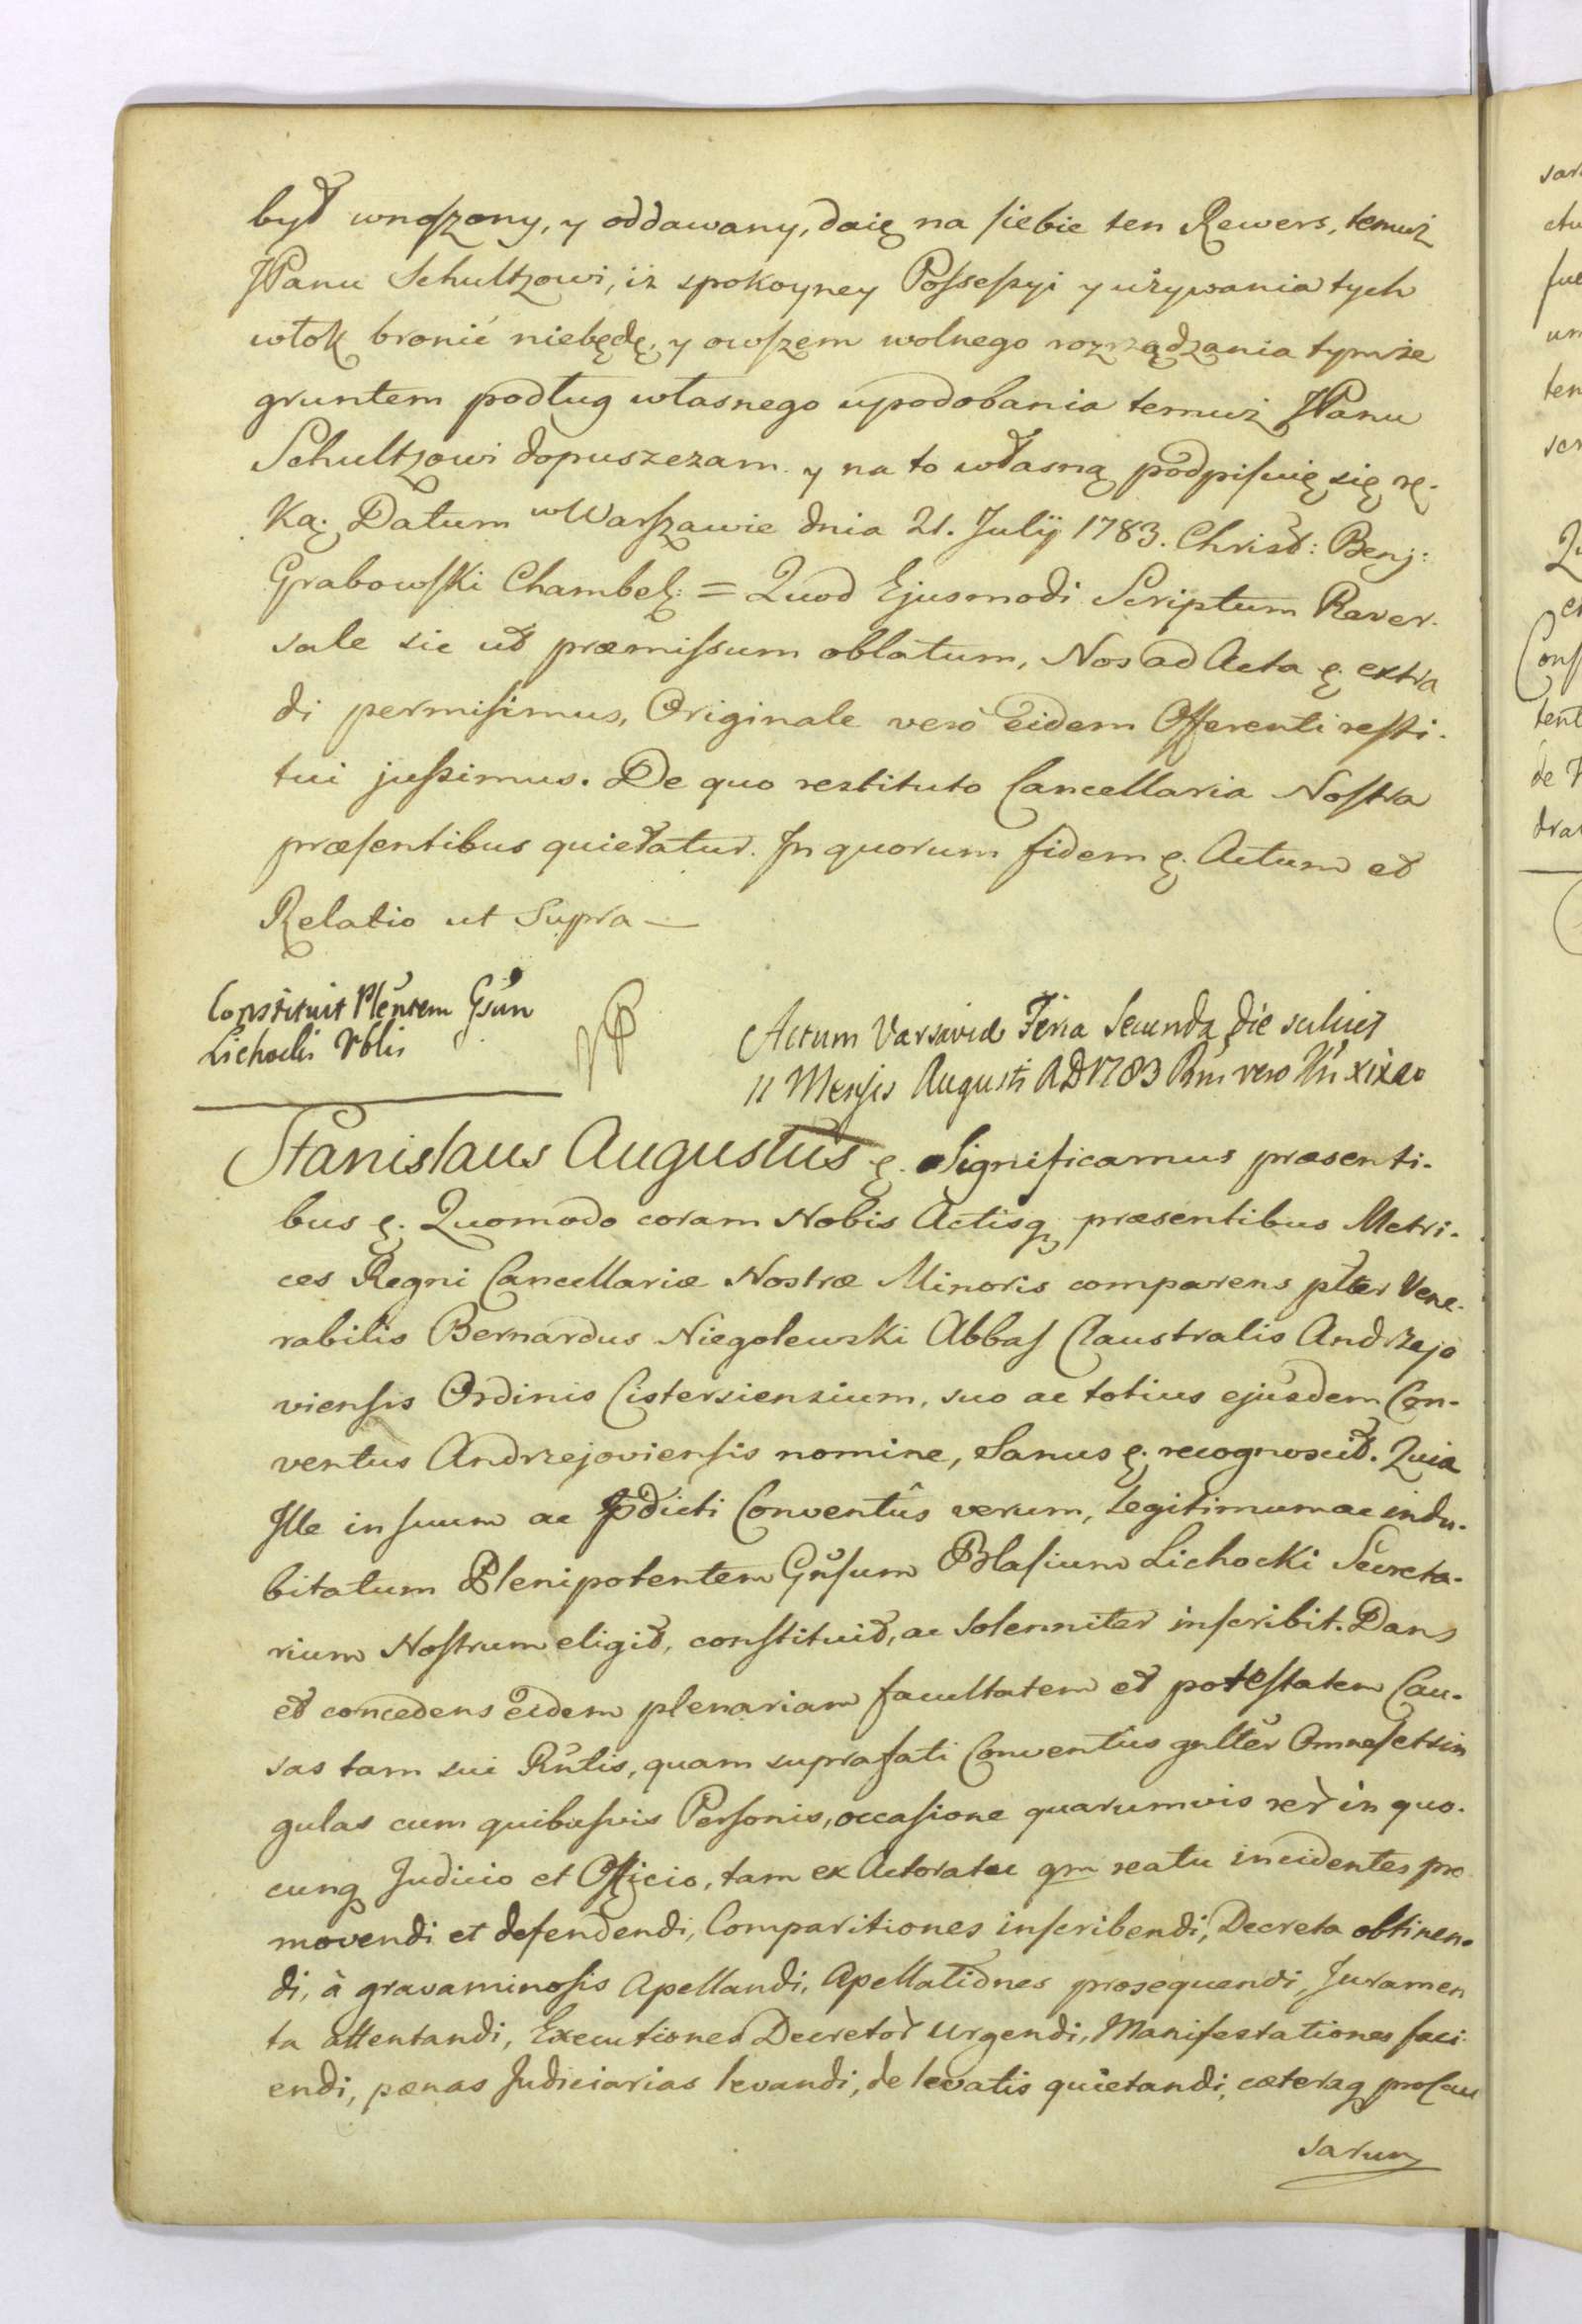 był wnoszony, y oddawany, daię na siebie ten Rewers, temuż
JPanu Schultzowi, iż spokoyney Possessyi y używania tych
włok bronić niebędę, y owszem wolnego rozrządzania tymże
gruntem podług własnego upodobania temuż JPanu
Schultzowi dopuszczam y na to własną podpisuię się rę-
ką. Datum w Warszawie dnia 21. Julij 1783. Christ: Benj:
Grabowski Chambel: = Quod Ejusmodi Scriptum Rever-
sale sic ut præmissum oblatum, Nos ad Acta &. extra
di permisimus, Originale verò eidem Offerenti resti-
tui jussimus. De quo restituto Cancellaria Nostra
præsentibus quietatur. In quorum fidem &. Actum et
Relatio ut Supra —
Constituit Plentem Gsun
Lichocki Vblis
Actum Varsaviæ Feria Secunda die scilicet
11 Mensis Augusti AD 1783 Rni vero Nri xixno
Stanislaus Augustus &. Significamus præsenti-
bus &. Quomodo coram Nobis Actisq præsentibus Metri-
ces Regni Cancellariæ Nostræ Minoris comparens plter Vene-
rabilis Bernardus Niegolewski Abbas Claustralis Andrzejo
viensis Ordinis Cistersiensium, suo ac totius ejusdem Con-
ventus Andrzejoviensis nomine, Sanus &. recognoscit. Quia
Ille in suum ac Pdicti Conventûs verum, legitimum ac indu-
bitatum Plenipotentem Gnsum Blasium Lichocki Secreta-
rium Nostrum eligit, constituit, ac Solenniter inscribit. Dans
et concedens eidem plenariam facultatem et potestatem Cau-
sas tam sui Rntis, quam suprafati Conventûs gnlter Omnes et sin
gulas cum quibusvis Personis, occasione quarumvis rer in quo-
cunq Judicio et Officio, tam ex Actoratu qm reatu incidentes pro
movendi et defendendi, Comparitiones inscribendi, Decreta obtinen-
di, à gravaminosis Apellandi, Apellationes prosequendi, Juramen
ta attentandi, Executiones Decretor urgendi, Manifestationes faci-
endi, pænas Judiciarias levandi, de levatis quietandi, cæteraq pro Cau
sarum